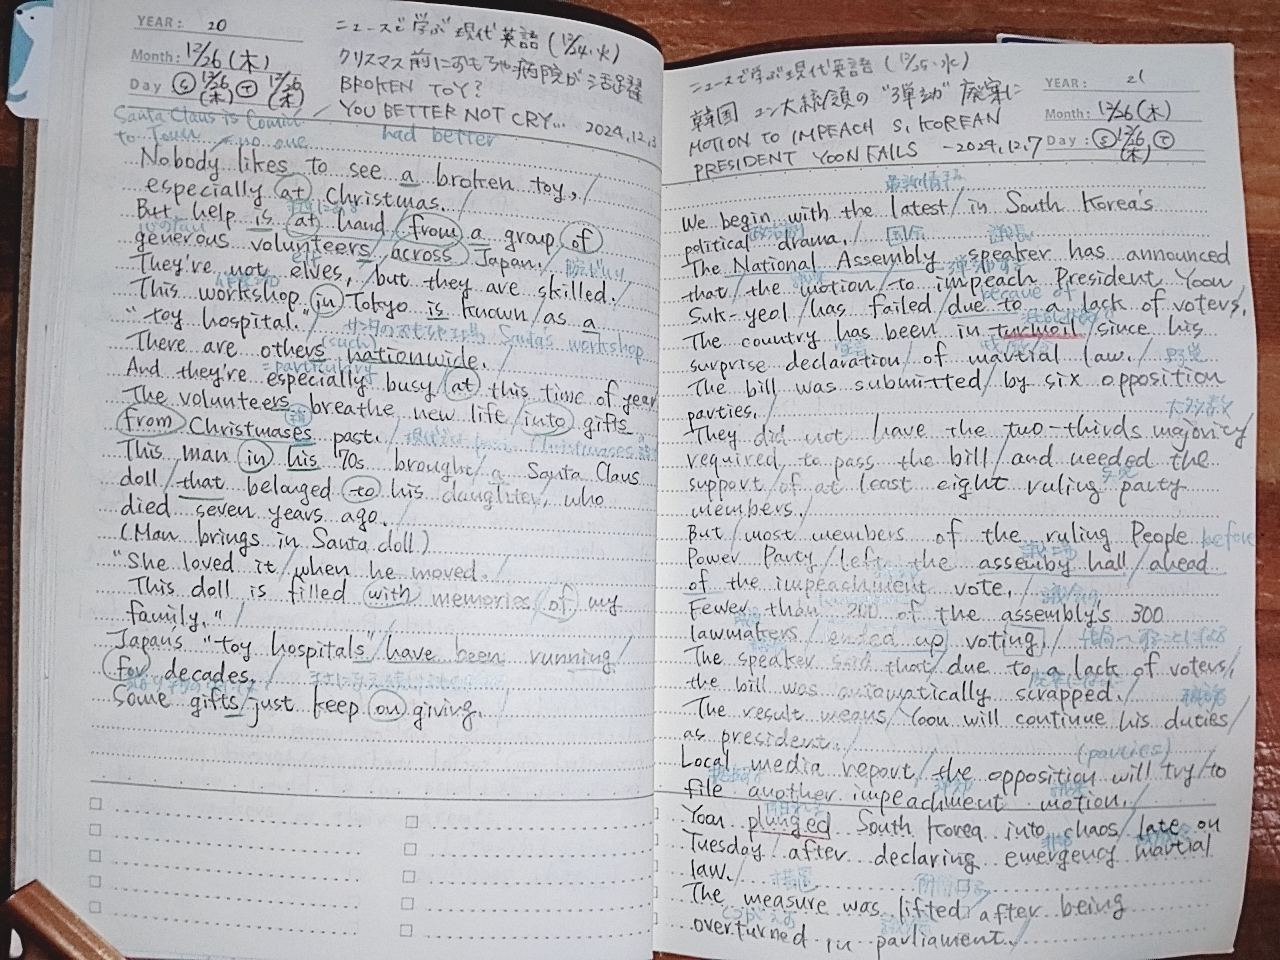 YEAR: 20
Month: 12/26 (木)
Day Ⓢ 12/26 (木) Ⓣ 12/26 (木)
ニュースで学ぶ現代英語 (12/24・火)
クリスマス前におもちゃ病院が大活躍
BROKEN TOY?
YOU BETTER NOT CRY... 2024.12.3
had better
Santa Claus is Comin'
to Town no one
Nobody likes to see a broken toy,/
especially at Christmas./
But help is at hand from a group of
generous volunteers/across Japan./
elf
They're not elves,/but they are skilled./
This workshop in Tokyo is known/as a
"toy hospital."/
Santa's workshop
There are others nationwide./
(such)
=particularly
And they're especially busy at this time of year
The volunteers breathe new life/into gifts
from Christmases past./
This man in his '70s brought/a Santa Claus
doll/that belonged to his daughter, who
died seven years ago./
(Man brings in Santa doll)
"She loved it/when he moved./
This doll is filled with memories of my
family."/
Japans "toy hospitals"/have been running/
for decades./
Some gifts/just keep on giving.
YEAR: 21
Month: 12/26 (木)
Day: Ⓢ 12/26 (木) Ⓣ
ニュースで学ぶ現代英語 (12/25・水)
韓国 ユン大統領の"弾劾"廃案に
MOTION TO IMPEACH S. KOREAN
PRESIDENT YOON FAILS -2024.12.7
最新情報
We begin with the latest/in South Korea's
political drama./
国会 議長
The National Assembly speaker has announced
弾劾する
that/the motion/to impeach President Yoon
because of
Suk-yeol/has failed/due to a lack of voters.
The country has been in turmoil/since his
surprise declaration/of martial law./
The bill was submitted/by six opposition
parties./
大多数
They did not have the two-thirds majority
required to pass the bill/and needed the
support/of at least eight ruling party
members./
But/most members of the ruling People
before
Power Party/left the assemby hall/ahead
of the impeachment vote./
Fewer than 200 of the assembly's 300
lawmakers/ended up voting./
The speaker said that/due to a lack of voters/
the bill was automatically scrapped./
The result means/Yoon will continue his duties/
as president./
(parties)
Local media report/the opposition will try/to
file another impeachment motion./
Yoon plunged South Korea into chaos/late on
Tuesday/after declaring emergency martial
law./
措置
The measure was lifted/after being
overturned in parliament./